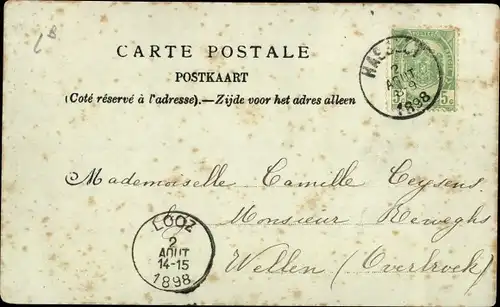 CARTE POSTALE
POSTKAART
(Coté réservé à l'adresse).—Zijde voor het adres alleen
HASSELT
2
AOUT
1898
5c
Mademoiselle Camille Ceysens
Monsieur
Wellen (Overbroek)
LOOZ
2
AOUT
14-15
1898